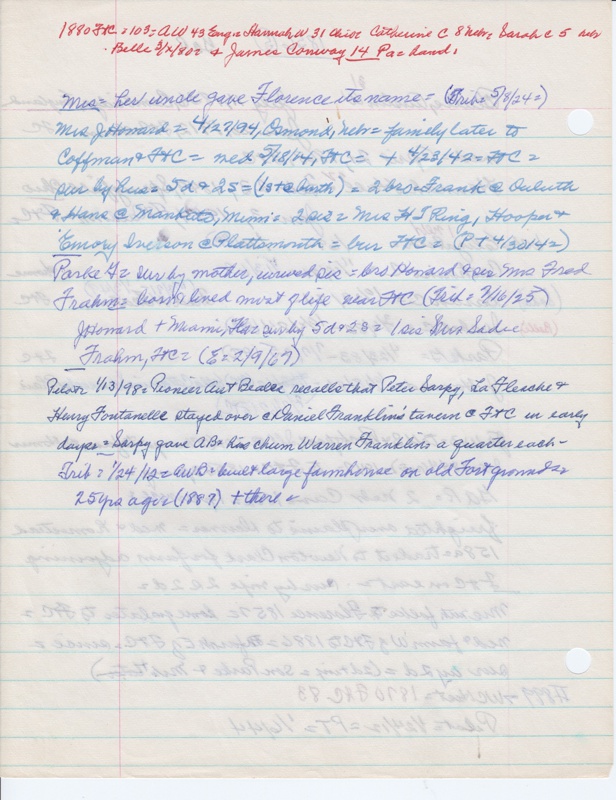 1880 FtC = 103 = AW 43 Eng = Hannah W 31 Catherine C 8 Nebr = Sarah C 5 nebr
Belle 9/x/80 = & James Conway 14 Pa = hand.
Mrs = her uncle gave Florence its name = (Trib = 5/8/24 =)
Mrs J. Howard = 4/27/94, Osmond, Nebr = family later to
Coffman & FtC = med 5/18/14, FtC = + 4/23/42 = FtC =
sur by hus = 5d & 2s = (1st c birth) = 2 bros = Frank c Duluth
& Hans c Mankato, Minn = 2 sis = Mrs H J Ring, Hooper &
Emory Iverson c Plattsmouth = bur FtC = (PT 4/30/42 =)
Parke F = sur by mother, sis = bro Howard & sis Mrs Fred
Frahm = born & lived most of life near FtC (Trib = 7/16/25)
J Howard + Miami, Fla = sur by 5d & 2s = 1 sis Mrs Sadie
Frahm, FtC = (E = 2/9/67)
Pilot = 1/13/98 = Pioneer Aust Beales recalls that Peter Sarpy, La Flesche &
Henry Fontanelle stayed over c Daniel Franklin's tavern c FtC in early
days = Sarpy gave AB & his chum Warren Franklin a quarter each -
Trib = 1/24/12 = AWB = built large farmhouse on old Fort grounds =
25 yrs ago = (1887) + there =